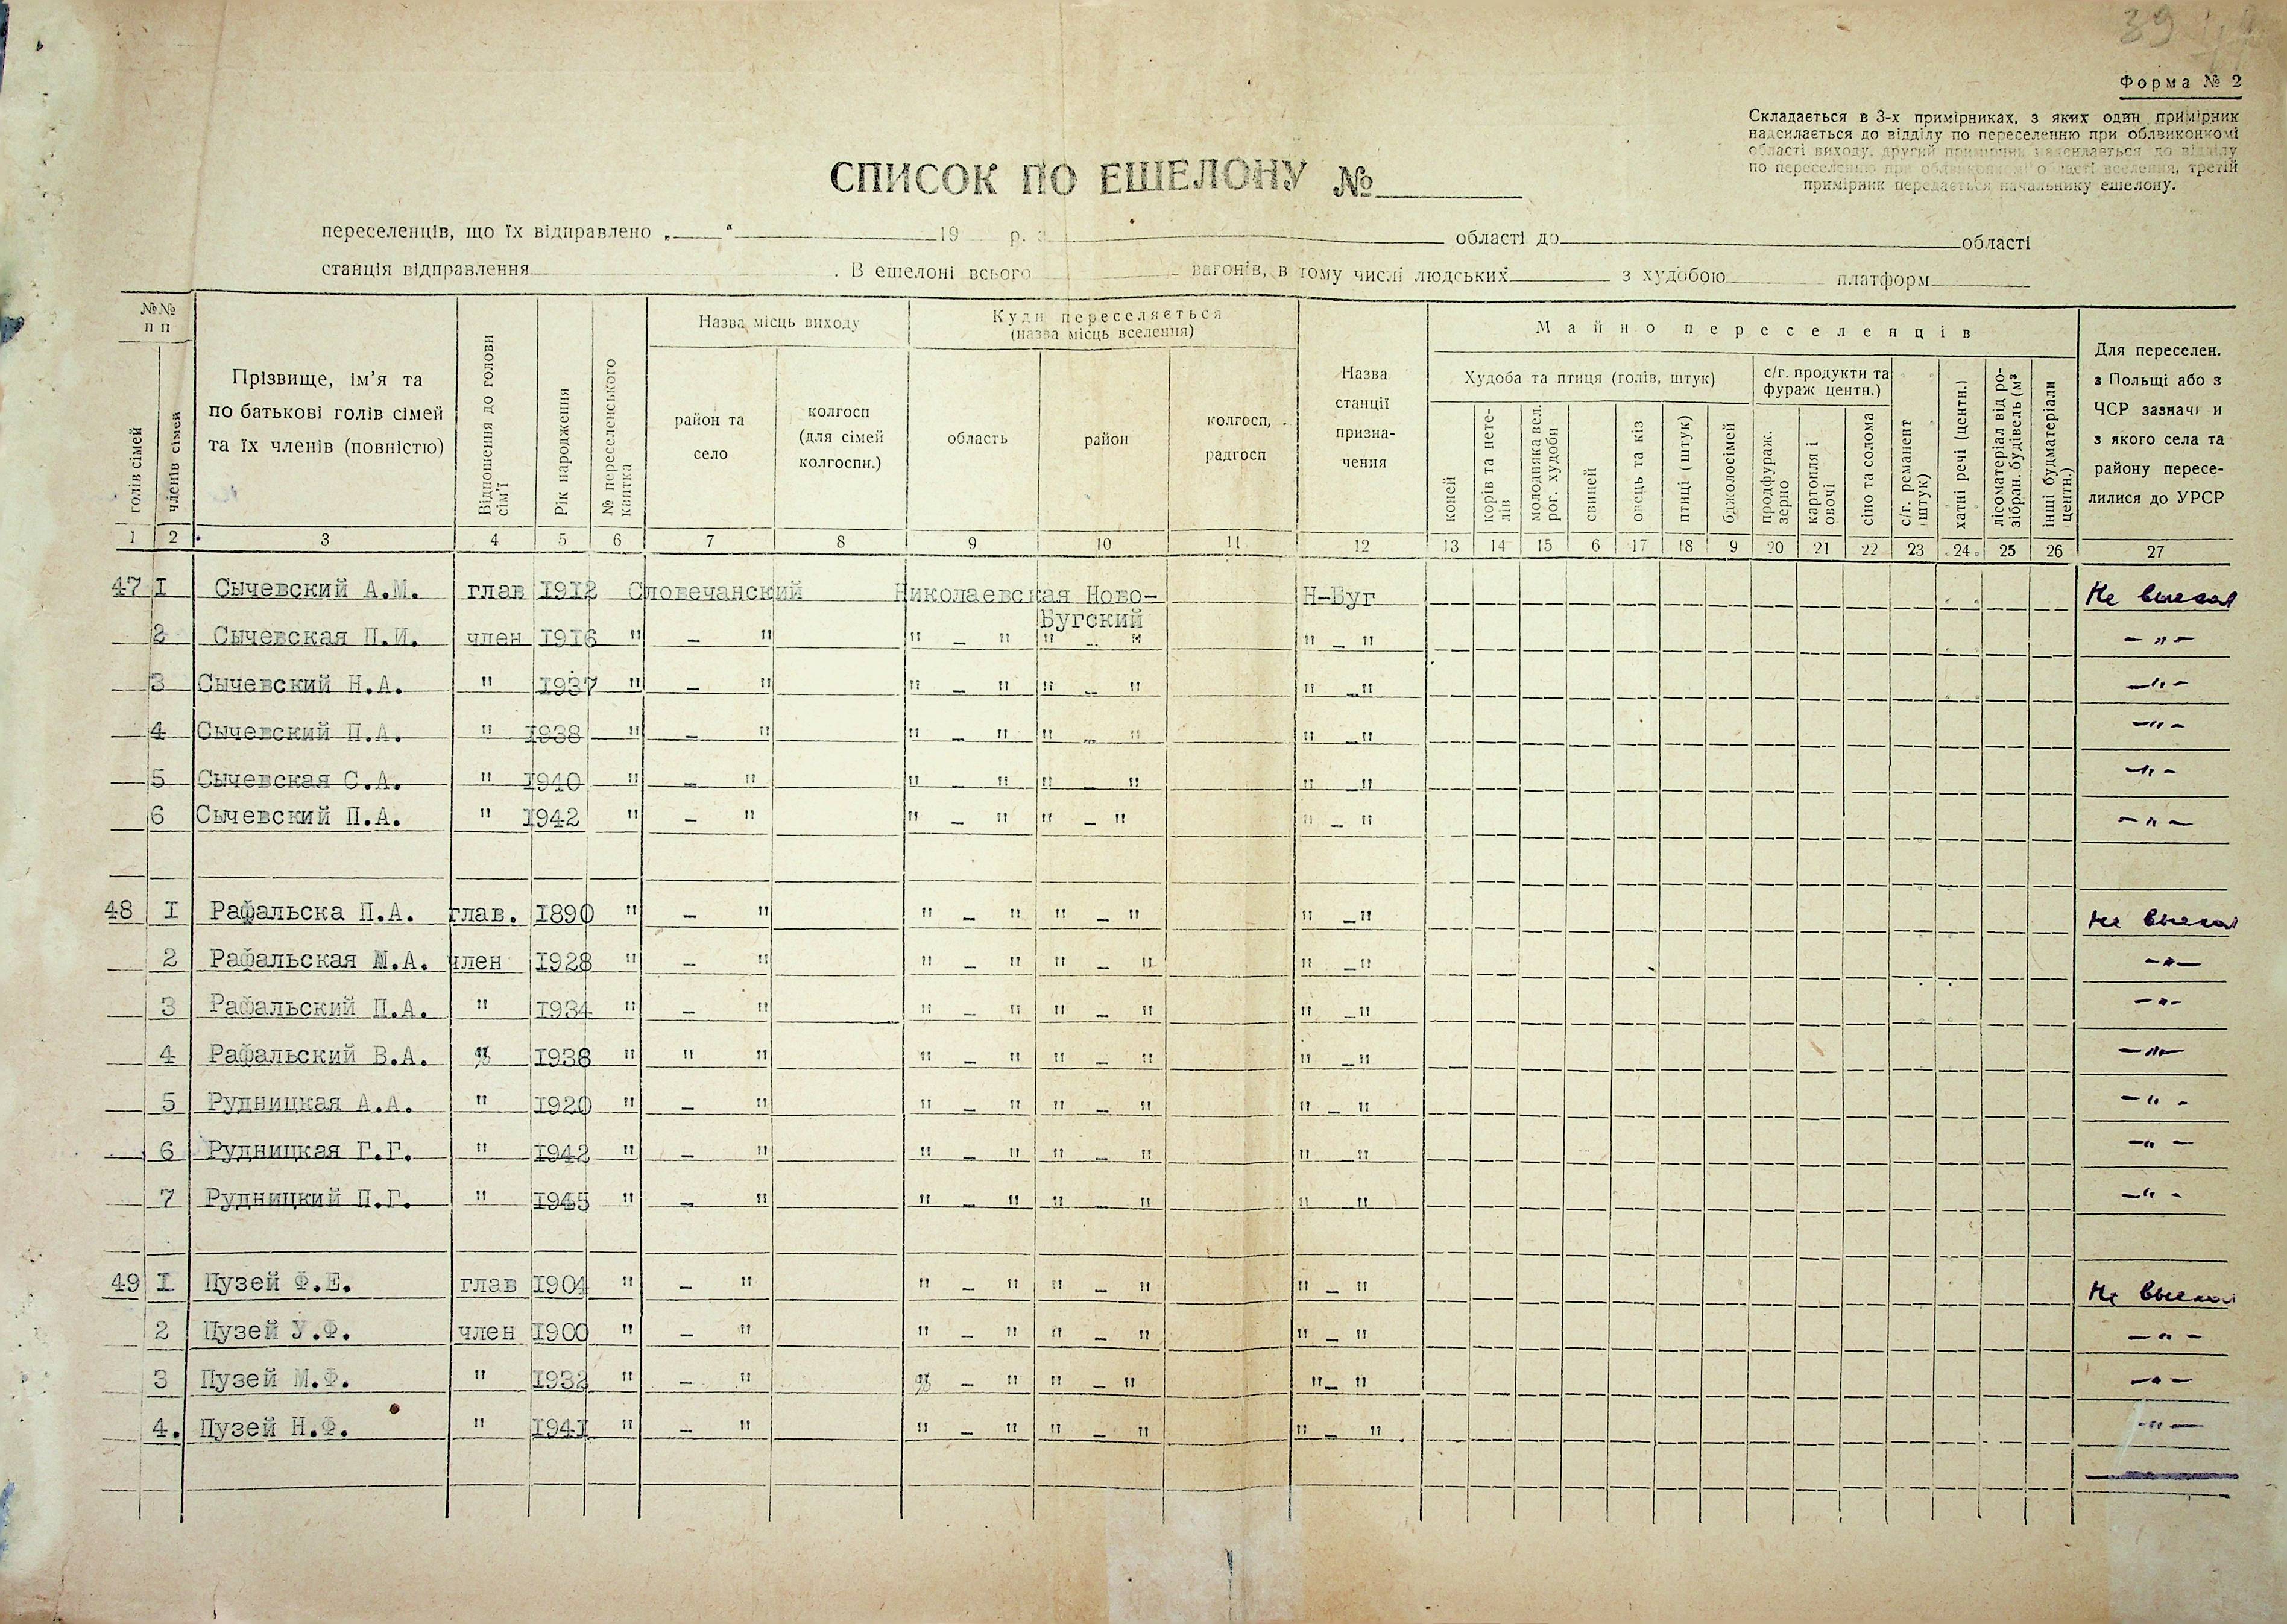 39
Форма № 2
Складається в 3-х примірниках, з яких один примірник
надсилається до відділу по переселенню при облвиконкомі
області виходу, другий примірник надсилається до відділу
по переселенню при облвиконкомі області вселення, третій
примірник передається начальнику ешелону.
СПИСОК ПО ЕШЕЛОНУ №
переселенців, що їх відправлено „ “ 19 р. з області до області
станція відправлення . В ешелоні всього вагонів, в тому числі людських з худобою платформ
№№ п п
голів сімей
членів сімей
Прізвище, ім'я та
по батькові голів сімей
та їх членів (повністю)
Відношення до голови сім'ї
Рік народження
№ переселенського квитка
Назва місць виходу
район та село
колгосп (для сімей колгоспн.)
Куди переселяється
(назва місць вселення)
область
район
колгосп, радгосп
Назва станції призна-
чення
Майно переселенців
Худоба та птиця (голів, штук)
коней
корів та нете-
лів
молодняка вел. рог. худоби
свиней
овець та кіз
птиці (штук)
бджолосімей
с/г. продукти та
фураж центн.)
продфураж. зерно
картопля і овочі
сіно та солома
с/г. реманент (штук)
хатні речі (центн.)
лісоматеріал від ро-
зібран. будівель (м³
інші будматеріали центн.)
Для переселен.
з Польщі або з
ЧСР зазначи и
з якого села та
району пересе-
лилися до УРСР
1 2 3 4 5 6 7 8 9 10 11 12 13 14 15 6 17 18 9 20 21 22 23 24 25 26 27
47 I Сычевский А.М. глав 1912 Словечанский Николаевская Ново-
Бугский Н-Буг Не выехал
2 Сычевская П.И. член 1916 " – " " – " " – " " – " – " –
3 Сычевский Н.А. " 1937 " – " " – " " – " " – " – " –
4 Сычевский П.А. " 1938 " – " " – " " – " " – " – " –
5 Сычевская С.А. " 1940 " – " " – " " – " " – " – " –
6 Сычевский П.А. " 1942 " – " " – " " – " " – " – " –
48 I Рафальска П.А. глав. 1890 " – " " – " " – " " – " Не выехал
2 Рафальская М.А. член 1928 " – " " – " " – " " – " – " –
3 Рафальский П.А. " 1934 " – " " – " " – " " – " – " –
4 Рафальский В.А. " 1938 " " " " – " " – " " – " – " –
5 Рудницкая А.А. " 1920 " – " " – " " – " " – " – " –
6 Рудницкая Г.Г. " 1942 " – " " – " " – " " – " – " –
7 Рудницкий П.Г. " 1945 " – " " – " " – " " – " – " –
49 I Пузей Ф.Е. глав 1904 " – " " – " " – " " – " Не выехал
2 Пузей У.Ф. член 1900 " – " " – " " – " " – " – " –
3 Пузей М.Ф. " 1932 " – " % – " " – " " – " – " –
4. Пузей Н.Ф. " 1941 " – " " – " " – " " – " . – " –